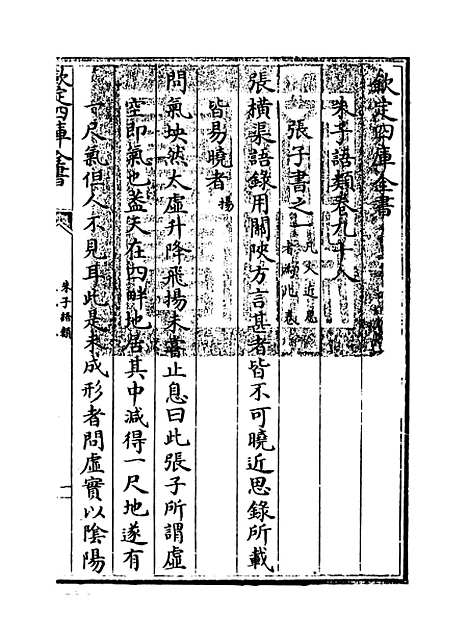 欽定四庫全書
朱子語類卷九十八
張子書之一凡入近思者為此卷
張橫渠語錄用關陜方言甚者皆不可曉近思錄所載
皆易曉者揚
問氣坱然太虛升降飛揚未嘗止息曰此張子所謂虛
空即氣也蓋天在四畔地居其中減得一尺地遂有
一尺氣但人不見耳此是未成形者問虛實以陰陽
欽定四庫全書
朱子語類